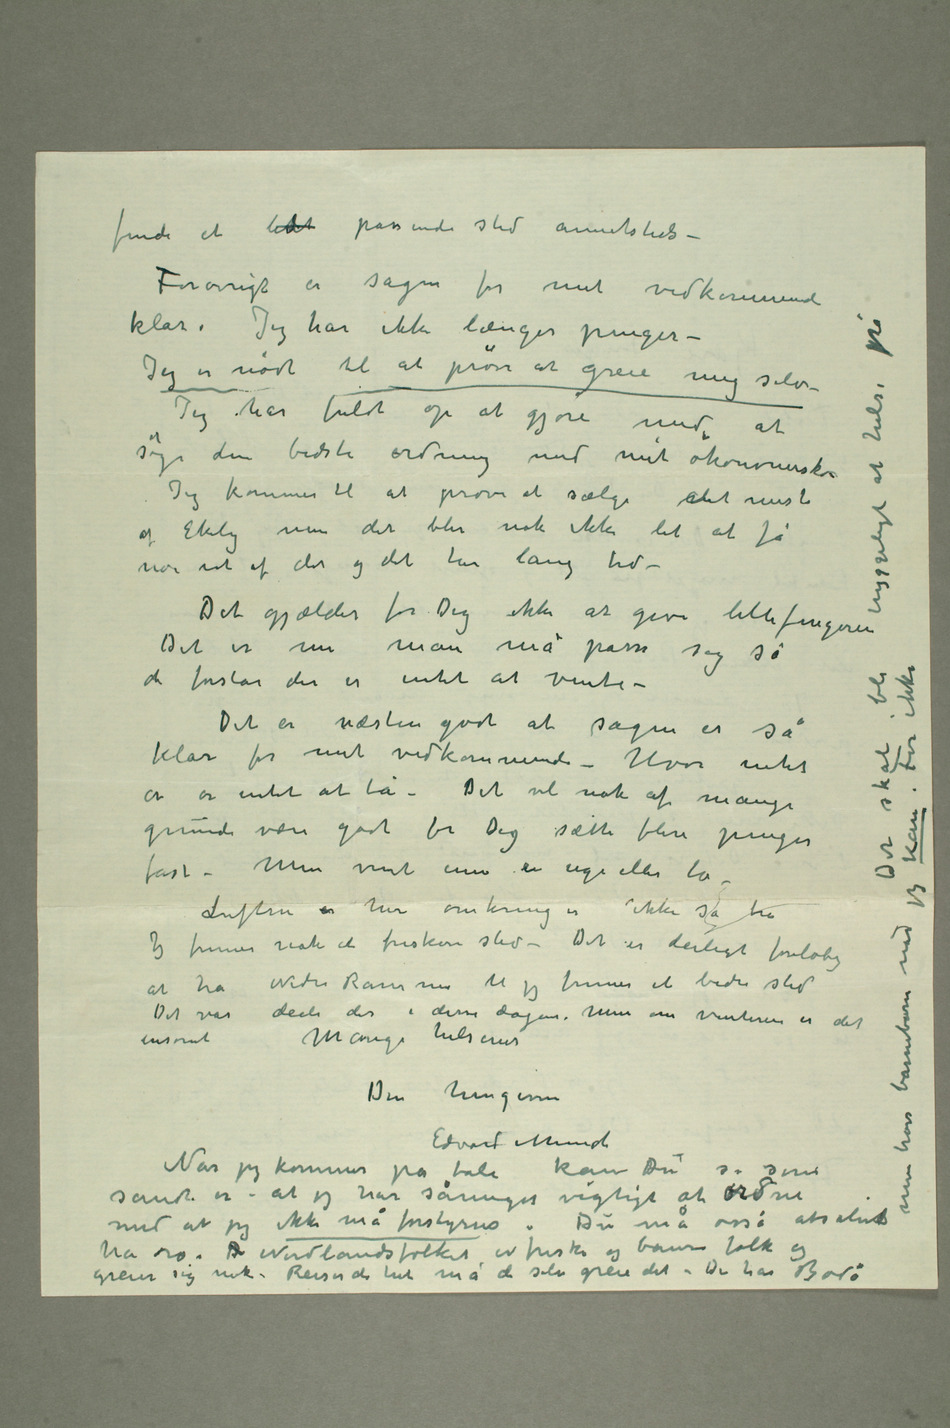 finde et lidt passende sted annetsteds –
Forøvrigt er sagen for mit vedkommende
klar. Jeg har ikke længer penger –
Jeg er nödt til at pröve at greie mig selv –
Jeg har fuldt op at gjøre med at
söge den bedste ordning med mit ökonomiske
Jeg kommer til at prøve at sælge det meste
af Ekely men det blir nok ikke let at få
noe ut af det og det tar lang tid –
Det gjælder for Dig ikke at give lillefingeren
Det er nu man må passe sig så
de forstår der er intet at vente –
Det er næsten godt at sagen er så
klar for mit vedkommende – Hvor intet
er er intet at ta – Det vil nok af mange
grunde være godt for Dig sætte flere penger
fast – Men vent enu en uge eller to –
Luften er her omkring er ikke så bra
Jeg finner nok et friskere sted – Det er deiligt foreløbig
at ha Nedre Ramme til jeg finner et bedre sted
Det var deilig der i disse dagene. Men om vinteren er det
ensomt Mange hilsener
Din hengivne
Edvard Munch
Når jeg kommer på tale kan Du si som
sandt er – at jeg har så meget vigtigt at ordne
med at jeg ikke må forstyrres. Du må også absolut
ha ro. Nordlandsfolket er friske og bærne folk og
greier sig nok. Reiser de hit må de selv greie det – De har Bodø
Det skal bli hyggeligt at hilse på
min hors barnebarn når jeg kan. før ikke